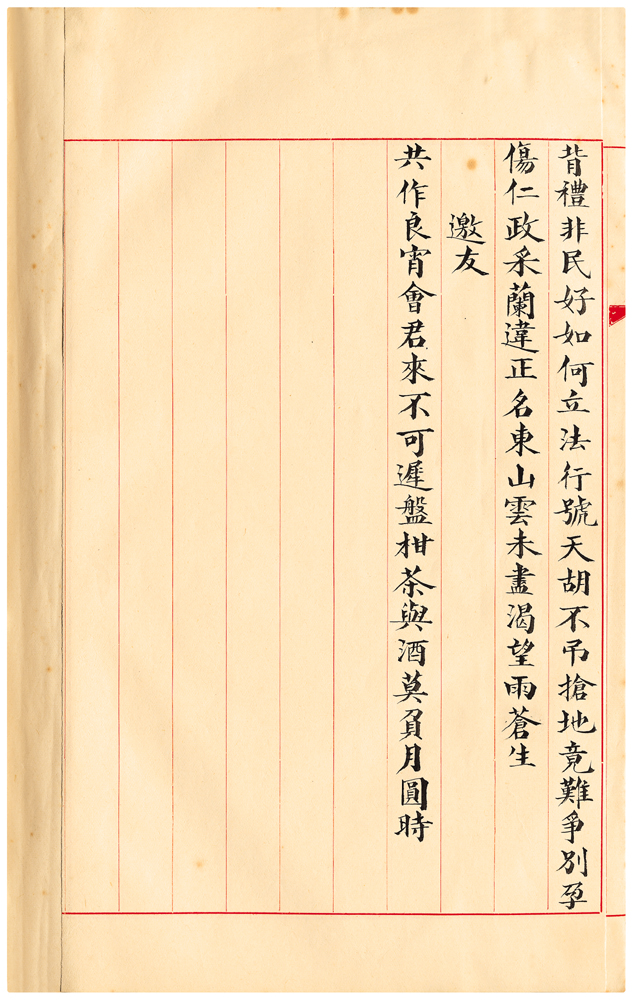 背禮非民好如何立法行號天胡不吊搶地竟難爭別孕
傷仁政采蘭違正名東山雲未盡渴望雨蒼生
邀友
共作良宵會君來不可遲盤柑茶與酒莫負月圓時